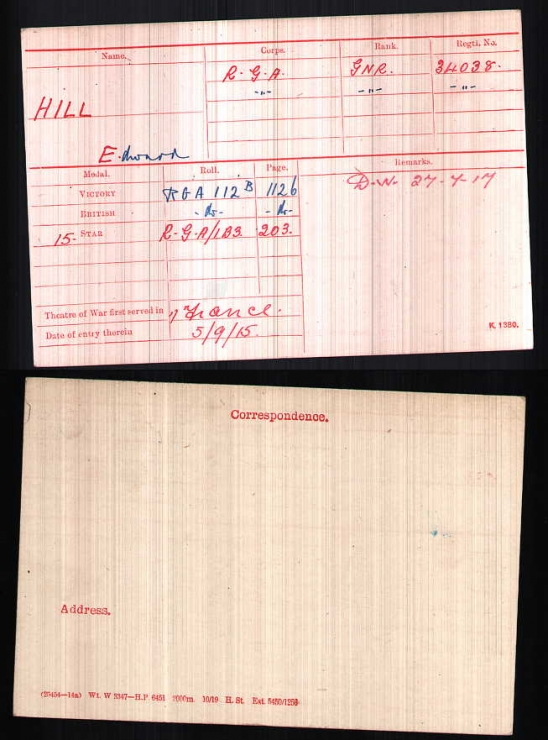 Name. Corps. Rank. Regtl. No.
HILL R.G.A. GNR. 34038.
-"- -"- -"-
Edward
Medal. Roll. Page. Remarks.
VICTORY RGA 112 B 1126 D.W. 27-7-17
BRITISH -do- -do-
15- STAR R.G.A/18B. 203.
Theatre of War first served in France.
Date of entry therein 5/9/15.
K. 1380.
Correspondence.
Address.
(25454—14a) Wt. W 3347—H.P 6451 2000m. 10/19 H. St.